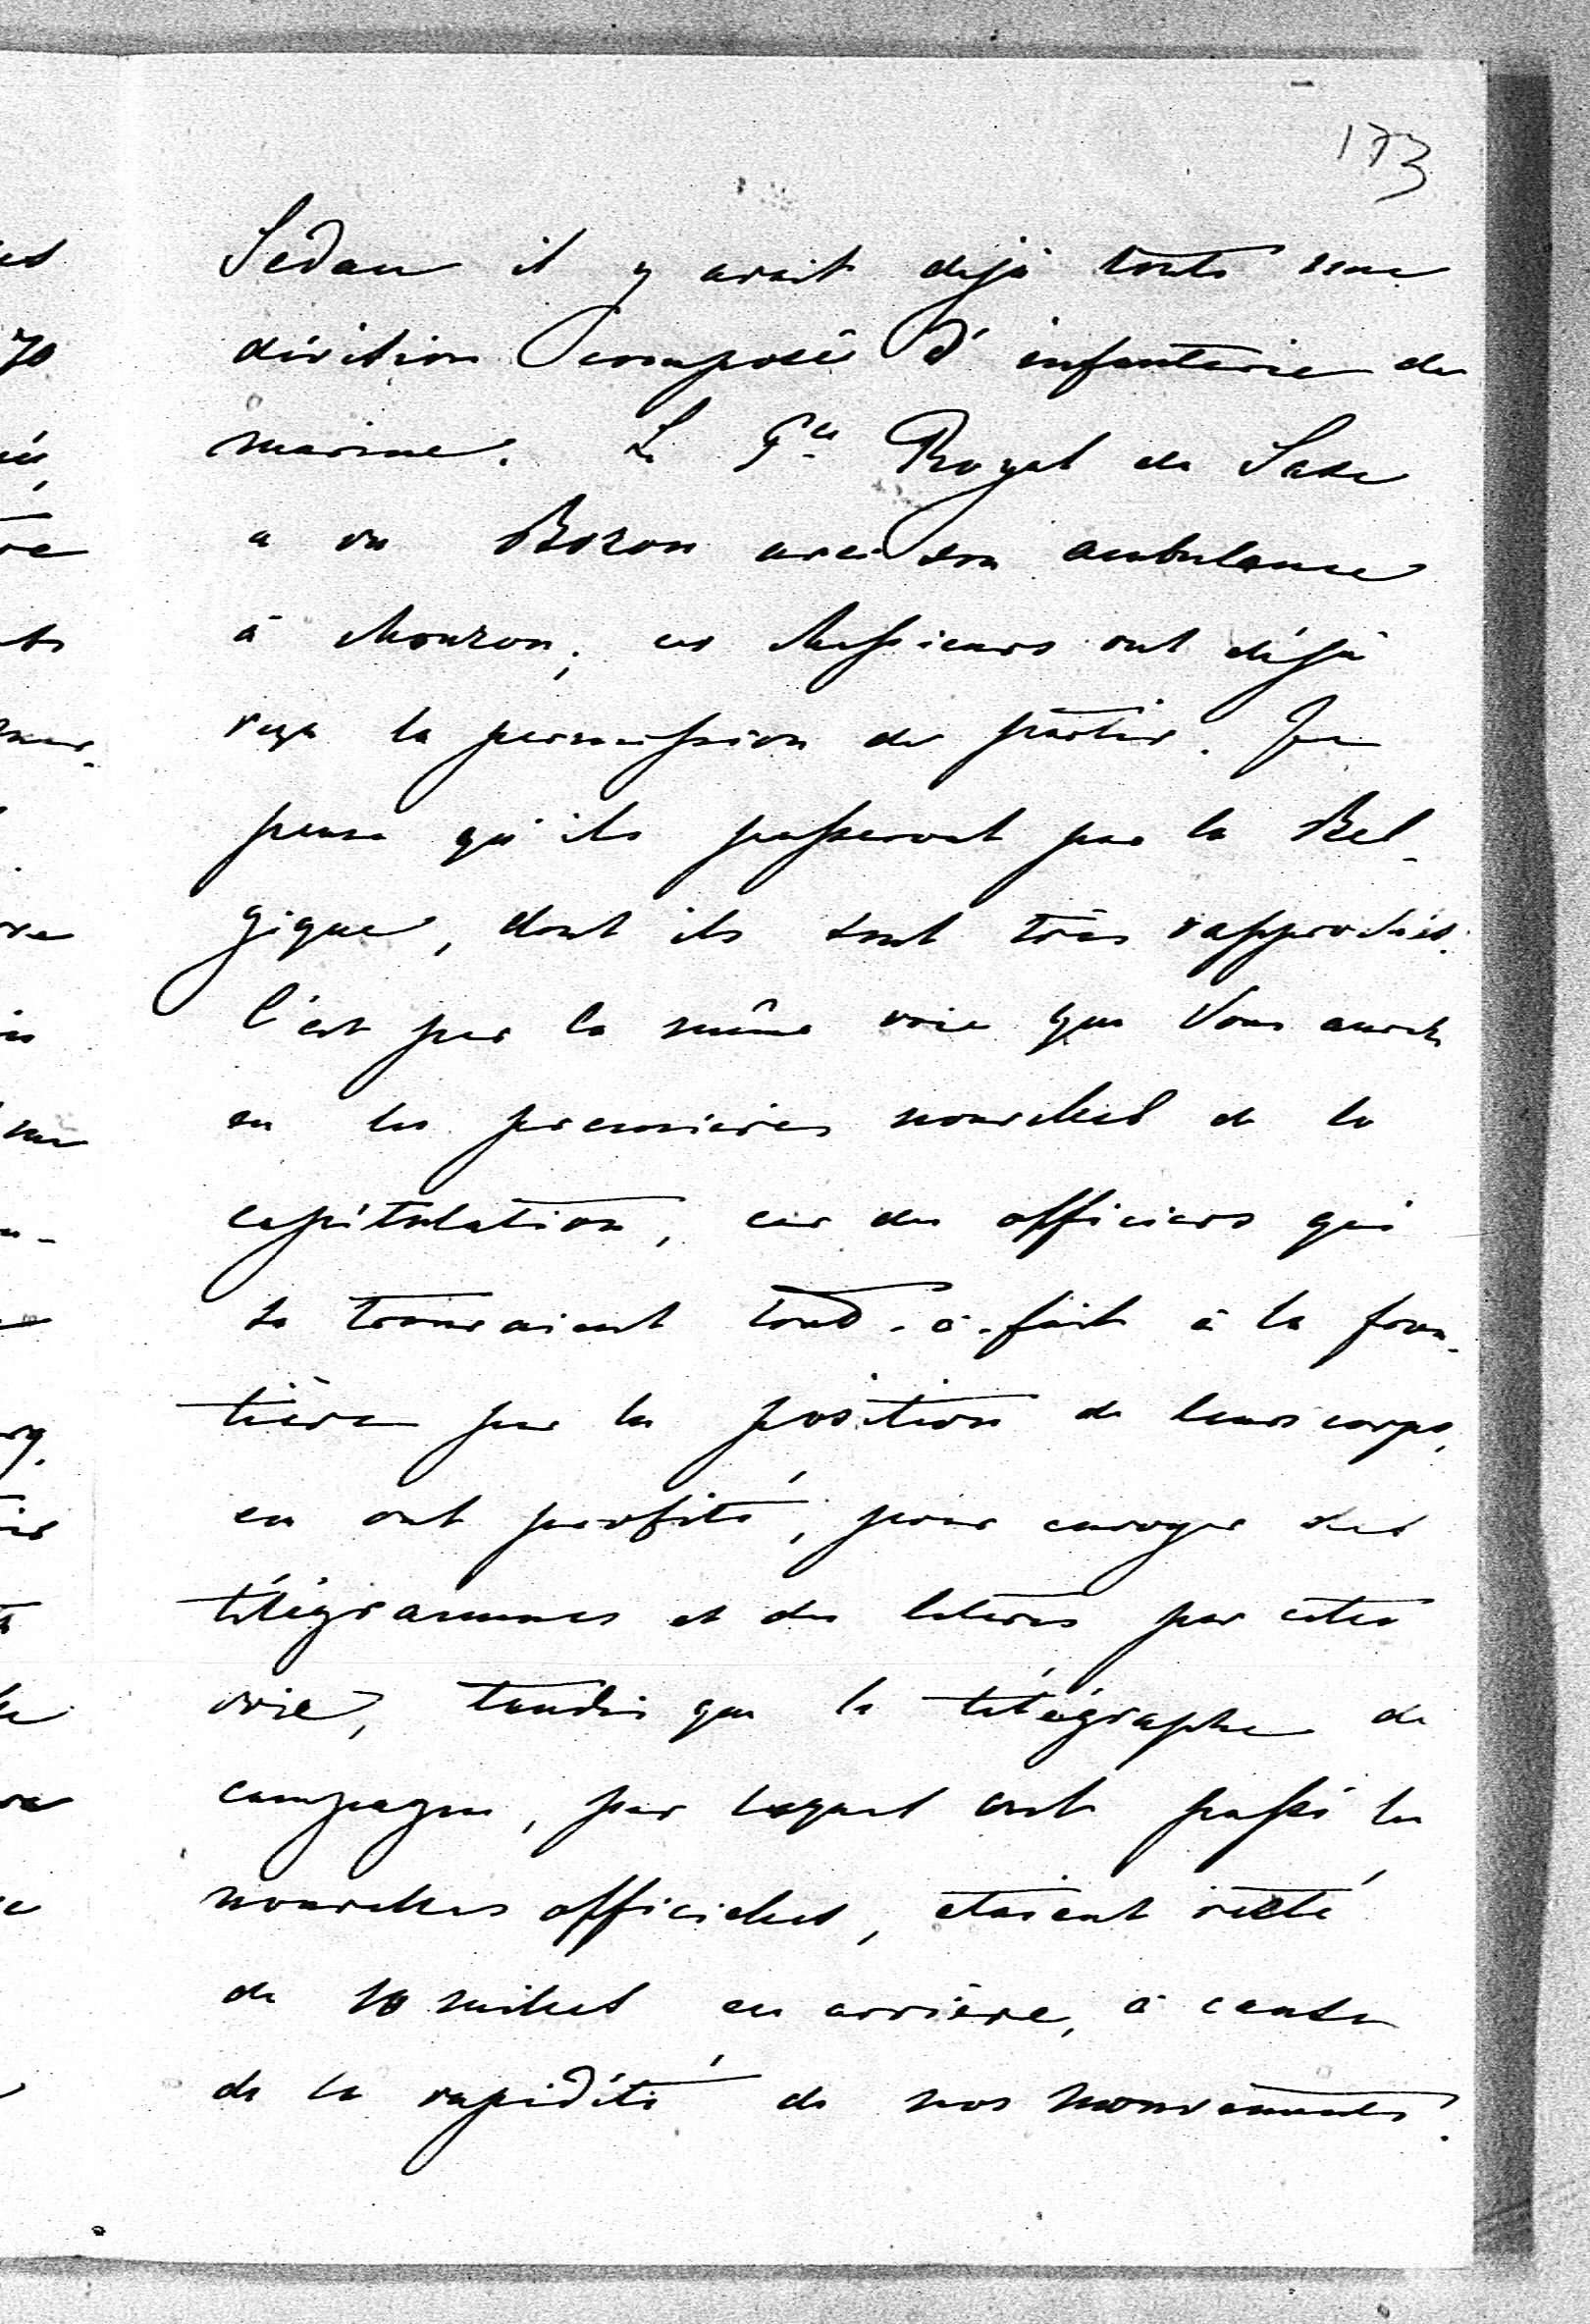 173
Sedan il y avait déjà toute une
division composée d'infanterie de
marine. Le Pce Royal de Saxe
a vu Bozon avec son ambulance
à Mouzon; ces Messieurs ont déjà
reçu la permission de partir. Je
pense qu'ils passeront par la Bel-
gique, dont ils sont très rapprochés.
C'est par la même voie que Vous aurez
eu les premières nouvelles de la
capitulation, car des officiers qui
se trouvaient tout-à-fait à la fron-
tière par la position de leurs corps,
en ont profité, pour envoyer des
télégrammes et des lettres par cette
voie, tandis que le télégraphe de
campagne, par lequel ont passé les
nouvelles officielles, etaient resté
de 10 milles en arrière, à cause
de la rapidité de nos mouvements.
70